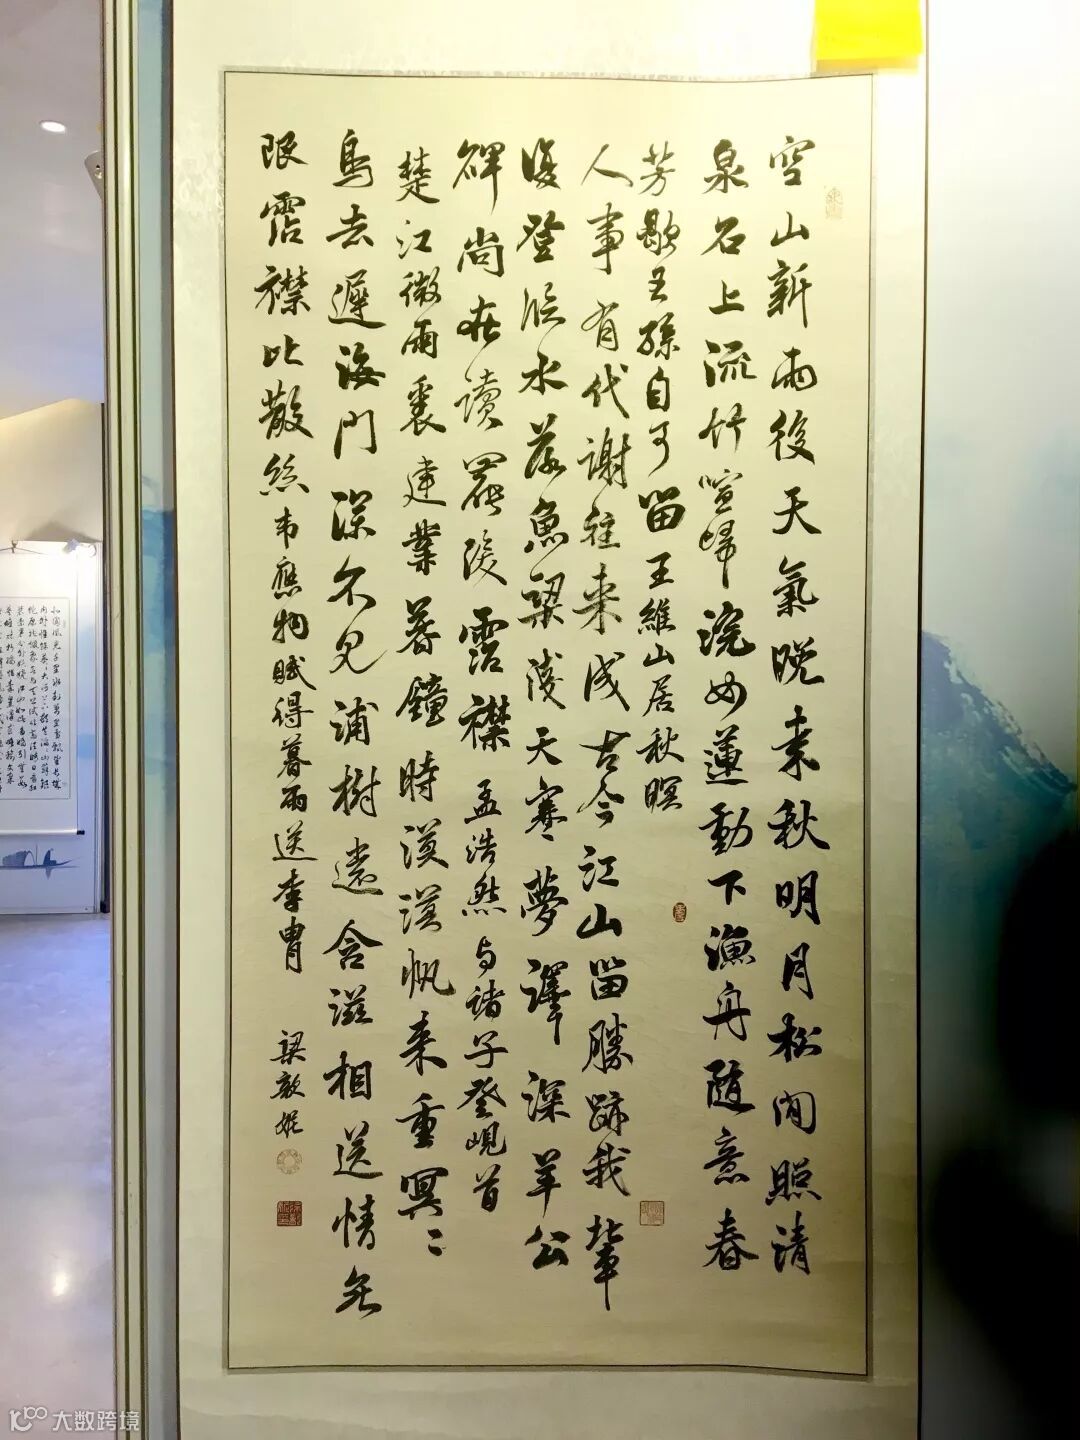 空山新雨後天氣晚来秋明月松间照清
泉石上流竹喧歸浣女蓮動下漁舟随意春
芳歇王孫自可留王維山居秋暝
人事有代謝往来成古今江山留勝跡我輩
復登臨水落魚梁淺天寒夢澤深羊公
碑尚在讀罷淚霑襟孟浩然与諸子登峴首
楚江微雨裏建業暮鐘時漠漠帆来重冥〻
鳥去遲海門深不見浦樹遠含滋相送情无
限霑襟比散絲韦應物賦得暮雨送李胄
梁敖妮
大数跨境